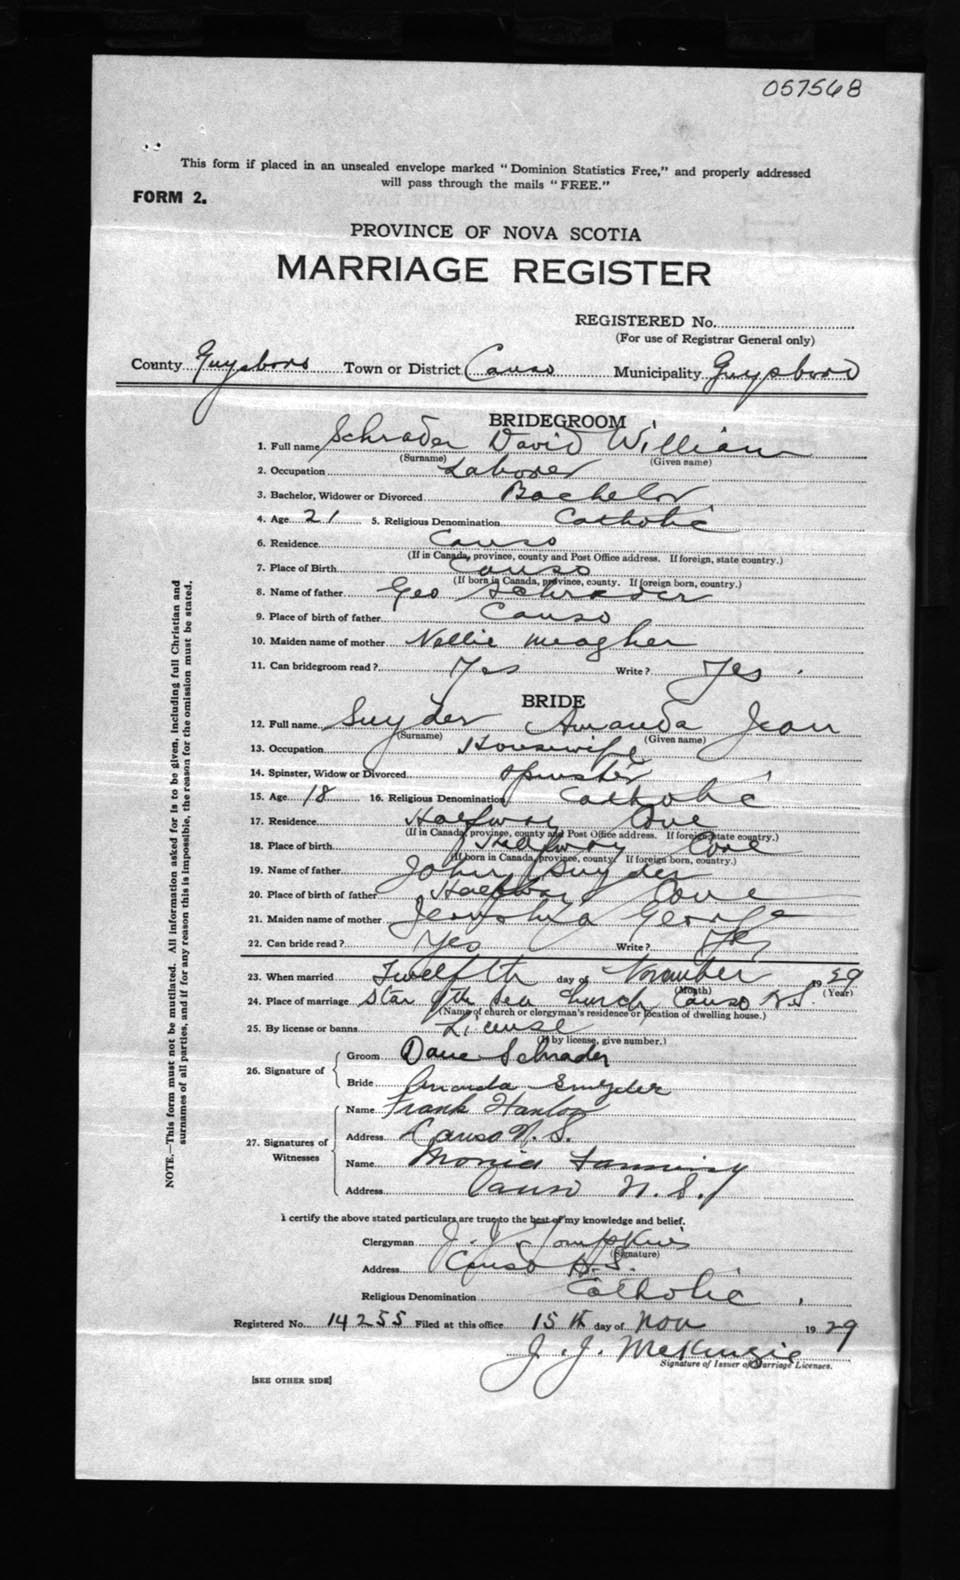 057568
This form if placed in an unsealed envelope marked "Dominion Statistics Free," and properly addressed
will pass through the mails "FREE."
FORM 2.
PROVINCE OF NOVA SCOTIA
MARRIAGE REGISTER
REGISTERED No.
(For use of Registrar General only)
County Guysboro Town or District Canso Municipality Guysboro
BRIDEGROOM
1. Full name Schrader David William
(Surname) (Given name)
2. Occupation Laborer
3. Bachelor, Widower or Divorced Bachelor
4. Age 21 5. Religious Denomination Catholic
6. Residence Canso
(If in Canada, province, county and Post Office address. If foreign, state country.)
7. Place of Birth Canso
(If born in Canada, province, county. If foreign born, country.)
8. Name of father Geo Schrader
9. Place of birth of father Canso
10. Maiden name of mother Nellie Meagher
11. Can bridegroom read? Yes Write? Yes.
BRIDE
12. Full name Snyder Amanda Jean
(Surname) (Given name)
13. Occupation Housewife
14. Spinster, Widow or Divorced Spinster
15. Age 18 16. Religious Denomination Catholic
17. Residence Halfway Cove
(If in Canada, province, county and Post Office address. If foreign state country.)
18. Place of birth Halfway Cove
(If born in Canada, province, county. If foreign born, country.)
19. Name of father John Snyder
20. Place of birth of father Halfway Cove
21. Maiden name of mother George
22. Can bride read? Yes Write? Yes
23. When married Twelfth day of November 1929
(Month) (Year)
24. Place of marriage Star of the Sea Church, Canso N.S.
(Name of church or clergyman's residence or location of dwelling house.)
25. By license or banns License
(If by license, give number.)
26. Signature of
Groom Dave Schrader
Bride Amanda Snyder
27. Signatures of Witnesses
Name Frank Hanlon
Address Canso N.S.
Name Monica Fanning
Address Canso N.S.
I certify the above stated particulars are true to the best of my knowledge and belief.
Clergyman J. J. Tompkins
(Signature)
Address Canso N.S.
Religious Denomination Catholic.
Registered No. 14255 Filed at this office 15th day of Nov 1929
J. J. McKenzie
Signature of Issuer of Marriage Licenses.
[SEE OTHER SIDE]
NOTE.—This form must not be mutilated. All information asked for is to be given, including full Christian and
surnames of all parties, and if for any reason this is impossible, the reason for the omission must be stated.